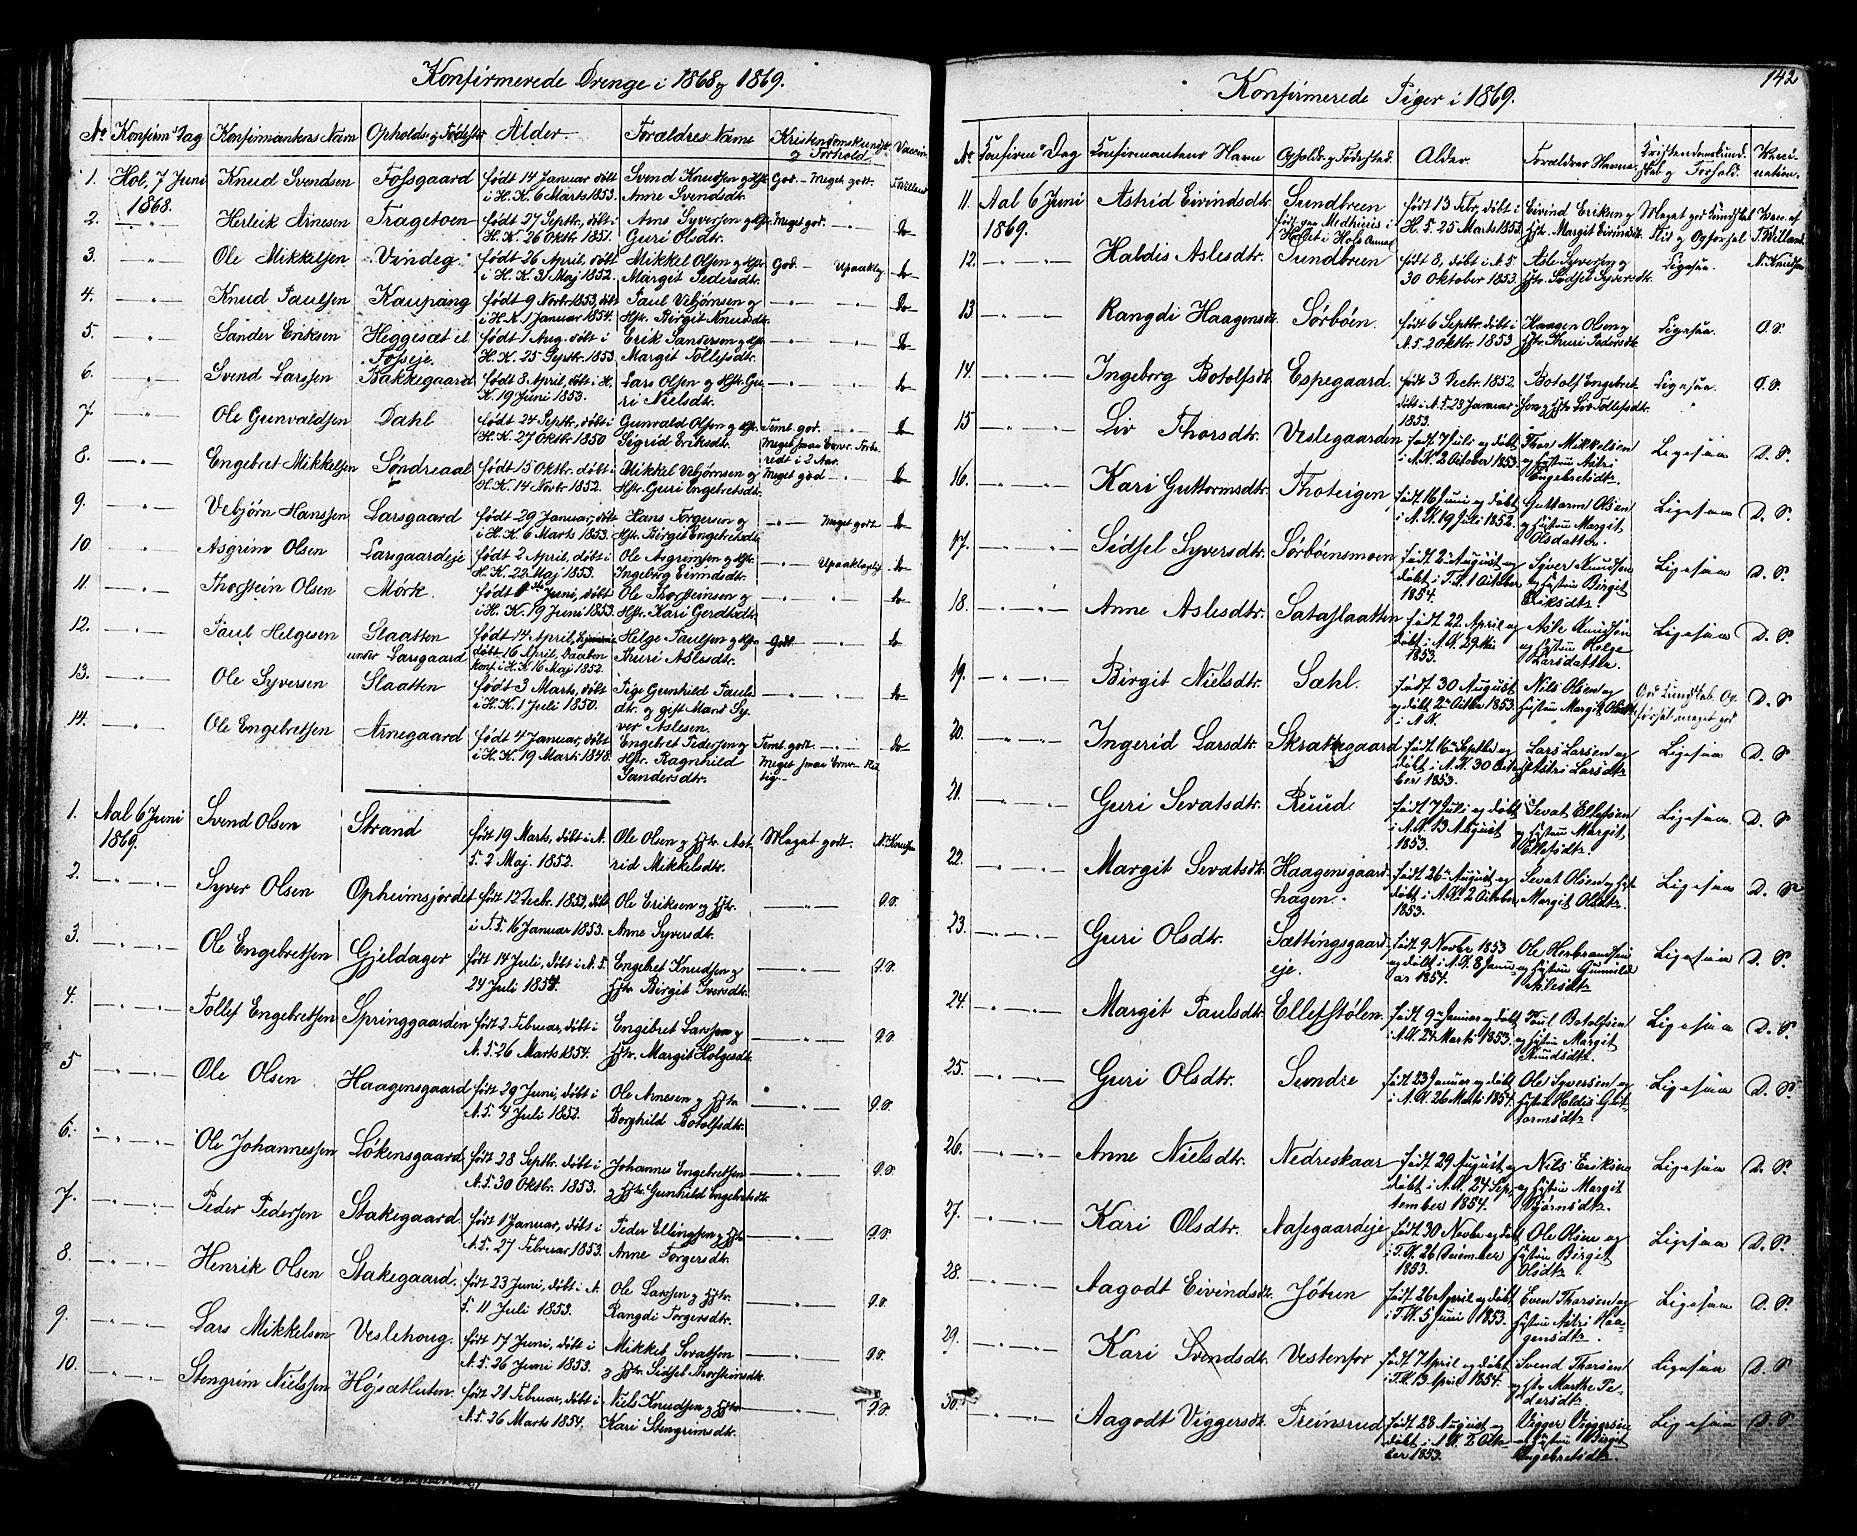 Konfirmerede Drenge i 1868 og 1869.
No Konfirm. Dag Konfirmantens Navn Opholds og Fødested Alder. Forældres Navne Kristendomskundsk. og Forhold. Vaccin.
1. Hol, 7 Juni 1868. Knud Svendsen Fossgaard født 14 Januar døbt i H. K. 6 Marts 1853. Svend Knudsen og Hstr. Anne Svendsdtr. God. - Meget godt.
2. Herleik Arnesen Tragetoen født 27 Septbr, døbt i H. K. 26 Oktbr. 1851. Arne Syversen og Hstr. Guri Olsdtr. Meget god. do
3. Ole Mikkelsen Vindeg. født 26 April, døbt i H. K. 31 Maj 1852. Mikkel Olsen og Hstr. Margit Pedersdtr. God - Upaaklag. do
4. Knud Paulsen Kaupang født 9 Novbr. 1853, døbt i H. K. 1 Januar 1854. Paul Vebjørnsen og Hstr. Birgit Knudsdtr. do
5. Sander Eriksen Heggesæt el. Fosseje. født 1 Aug. døbt i H. K. 25 Septbr. 1853. Erik Sandersen og Hstr. Margit Tollefsdtr. do
6. Svend Larssen Bakkegaard født 8 April, døbt i H. K. 19 Juni 1853. Lars Olsen og Hstr. Guri Nielsdtr. do
7. Ole Gunvaldsen Dahl født 24 Septbr, døbt i H. K. 27 Oktbr. 1850 Gunvald Olsen og Hstr. Sigrid Eriksdtr. Temt. god. Meget smaa Evner. Forberedt i 2 Aar. do
8. Engebret Mikkelsen Søndreaal født 15 Oktbr. døbt i H. K. 14 Novbr. 1852. Mikkel Vebjørnsen og Hstr. Guri Engebretsdtr. Meget god do
9. Vebjørn Hanssen Larsgaard født 29 Januar, døbt i H. K. 6 Marts 1853. Hans Torgersen og Hstr. Birgit Engebretsdtr. Meget godt do
10. Asgrim Olsen Larsgaardeje født 2 April, døbt i H. K. 22 Maj 1853. Ole Asgrimsen og Hstr. Ingeborg Eivindsdtr. Upaaklagelig do
11. Thorstein Olsen Mørk. født 1ste Juni, døbt i H. K. 19 Juni 1853. Ole Thorsteinsen og Hstr. Kari Gerdsdtr. do
12. Paul Helgesen Slaatten under Larsgaard født 14 April, døbt 16 April, Daaben konf. i H. K. 16 Maj 1852. Helge Paulsen og Hstr. Thuri Aslesdtr. Godt do
13. Ole Syversen Slaatten født 3 Marts, døbt i H. K. 1 Juli 1850. Pige Gunhild Paulsdtr. og gift Mand Syver Aslesen. do
14. Ole Engebretsen Arnegaard født 4 Januar, døbt i H. K. 19 Marts 1848. Engebret Pedersen og Hstr. Ragnhild Sandersdtr. Temt. godt. Meget smaa Evner. Flittig. do
1. Aal 6 Juni 1869. Svend Olsen Strand født 19 Marts, døbt i A. K. 2 Maj 1852. Ole Olsen og Hstr. Astrid Mikkelsdtr. Meget godt. N. Knudsen
2. Syver Olsen Opheimsjordet født 12 Decbr. 1852, døbt i T. K. 16 Januar 1853. Ole Eriksen og Hstr. Anne Syversdtr. D.S.
3. Ole Engebretsen Gjeldager født 14 Juli, døbt i A. K. 24 Juli 1854. Engebret Knudsen og Hstr. Birgit Iversdtr. D.S.
4. Tollef Engebretsen Springgaarden født 2 Februar, døbt i A. K. 26 Marts 1854. Engebret Larssen og Hstr. Margit Helgesdtr. D.S.
5 Ole Olsen Haagensgaard født 29 Juni, døbt i A. K. 4 Juli 1852. Ole Arnesen og Hstr. Borghild Botolfsdtr. D.S.
6. Ole Johannessen Løkensgaard født 28 Septbr. døbt i A. K. 30 Oktbr. 1853. Johannes Engebretsen og Hstr. Gunhild Engebretsdtr. D.S.
7. Peder Pedersen Stakegaard født 1 Januar, døbt i A. K. 27 Februar 1853. Peder Ellingsen og Hstr. Anne Torgersdtr. D.S.
8. Henrik Olsen Stakegaard. født 23 Juni, døbt i A. K. 11 Juli 1853. Ole Larssen og Hstr. Rangdi Torgersdtr. D.S.
9. Lars Mikkelsen Veslehoug. født 17 Juni, døbt i A. K. 26 Juni 1853. Mikkel Sevatsen og Hstr. Sidsel Thorsteinsdtr. D.S.
10. Stengrim Nielssen Højsætluten. født 21 Februar, døbt i A. K. 26 Marts 1854. Niels Knudsen og Hstr. Kari Stengrimsdtr. D.S.
142
Konfirmerede Piger i 1869.
No Konfirm. Dag Konfirmantens Navn Opholds og Fødested. Alder. Forældres Navne Kristendomskundskab og Forhold. Vaccination.
11. Aal 6 Juni 1869. Astrid Eivindsdtr. Sundbreen født paa Medhuus i Holet i Hols Annex født 13 Febr, døbt i H. K. 25 Marts 1853. Eivind Eriksen og Hstr. Margit Eivindsdtr. Meget god Kundskab Flid og Opførsel Vacc. af T. Willand.
12. Haldis Aslesdtr. Sundbreen født 8, døbt i A. K. 30 Oktober 1853. Asle Syversen og Hstr. Sidsel Syversdtr. Ligesaa. N. Knudsen
13 Rangdi Haagensdtr. Sørbøen. født 6 Septbr. døbt i A. K. 2 Oktbr. 1853 Haagen Olsen og Hstr. Thuri Pedersdtr. Ligesaa. D.S.
14. Ingeborg Botolfsdtr. Espegaard. født 3 Decbr. 1852. døbt i A. K. 23 Januar 1853. Botolf Engebretsen og Hstr. Liv Tollefsdtr. Ligesaa. D.S.
15 Liv Thorsdtr. Veslegaarden født 7 Juli og døbt i A. K. 2 October 1853. Thor Mikkelsen og Hustru Astri Engebretsdtr. Ligesaa D. S.
16. Kari Guttormsdtr. Thoteigen født 16 Juni og døbt i A. K. 19 Juli 1852. Guttorm Olsen og Hustru Margit Olsdatter. Ligesaa D. S.
17. Sidsel Syversdtr. Sørbøensmoen født 2 August og døbt i T. K. 1 October 1854. Syver Knudsen og Hustru Birgit Eriksdtr. Ligesaa D. S.
18. Anne Aslesdtr. Sataslaatten født 22 April og døbt i A. K. 29 Mai 1853. Asle Knudsen og Hustru Helge Larsdatter Ligesaa D. S.
19. Birgit Nielsdtr. Sæhl. født 30 August og døbt 2 Octbr 1853. i A. K. Nils Olsen og Hustru Margit Olsdtr. God Kundskab. Opførsel meget god D. S.
20. Ingerid Larsdtr. Skrattegaard født 16 Septbr og døbt i A. K. 30 October 1853. Lars Larsen og Hustru Astri Larsdtr. Ligesaa D. S.
21. Guri Sevatsdtr. Ruud. født 7 Juli og døbt i A. K. 13 August 1853. Sevat Ellefsen og Hustru Margit Ellefsdtr. Ligesaa. D. S.
22. Margit Sevatsdtr. Haagensgaardhagen. født 26 August og døbt i A. K. 2 October 1853. Sevat Olsen og Hstr Margit Olsdtr. Ligesaa D. S.
23. Guri Olsdtr. Sættingsgaardeje. født 9 Novbr 1853 og døbt i A. K. 8 Januar 1854. Ole Herbrandsen og Hustru Gunnild Aslesdtr. Ligesaa D. S.
24. Margit Paulsdtr. Ellefstølen. født 9 Januar og døbt i A. K. 24 Marts 1853. Paul Botolfsen og Hustru Margit Knudsdtr. Ligesaa D. S.
25. Guri Olsdtr. Sundre født 23 Januar og døbt i A. K. 26 Marts 1854. Ole Syversen og Hustru Haldis Guttormsdtr. Ligesaa D. S.
26. Anne Nielsdtr. Nedreskaar født 29 August og døbt i A. K. 24 September 1854. Nils Eriksen og Hustru Margit Bjørnsdtr. Ligesaa D. S.
27. Kari Olsdtr. Aasegaardeje født 30 Novbr og døbt i T. K. 26 December 1853. Ole Olsen og Hustru Birgit Olsdtr. Ligesaa D. S.
28. Aagodt Eivindsdtr. Jøtun født 26 April og døbt i T. K. 5 Juni 1853. Even Thorsen og Hustru Astri Haagensdtr. Ligesaa D. S.
29. Kari Svendsdtr. Vestenfor født 7 April og døbt i T. K. 13 April 1854. Svend Thorsen og Hstr Marthe Pedersdtr. Ligesaa D. S.
30. Aagodt Viggersdtr. Treinsrud født 28 August og døbt i A. K. 2 October 1853. Vigger Viggersen og Hustru Birgit Engebretsdtr. Ligesaa D. S.